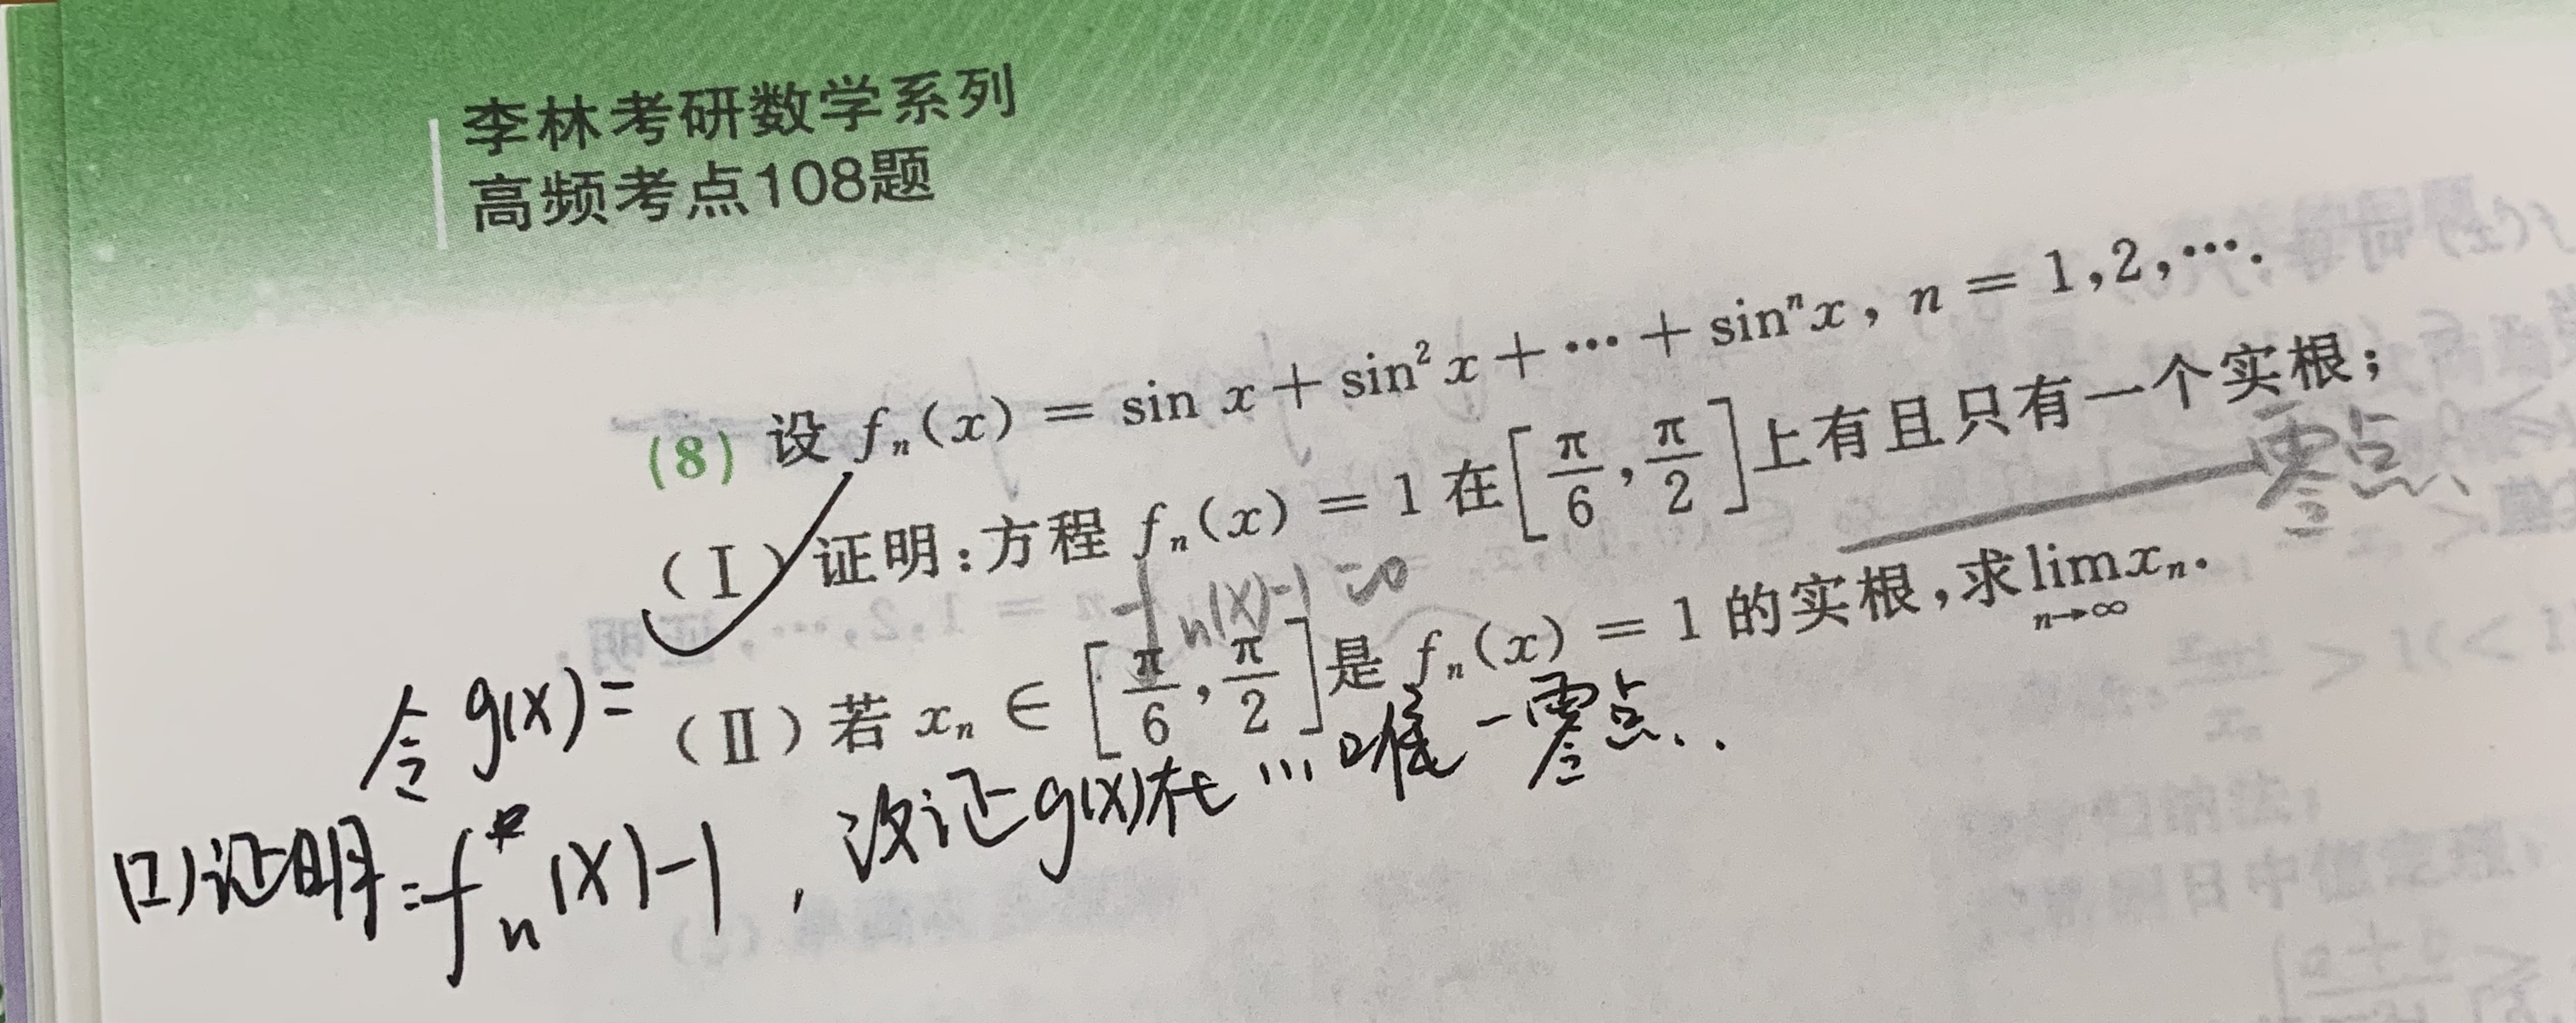 李林考研数学系列
高频考点108题
(8) 设 fₙ(x) = sin x + sin² x + ⋯ + sinⁿ x, n = 1,2,⋯.
(Ⅰ) 证明:方程 fₙ(x) = 1 在[π/6, π/2]上有且只有一个实根;
零点
fₙ(x)-1=0
(Ⅱ) 若 xₙ ∈ [π/6, π/2]是 fₙ(x) = 1 的实根,求 lim_{n→∞} xₙ.
令 g(x)=
(1)证明:fₙ(x)-1,没证g(x)在…唯一零点..